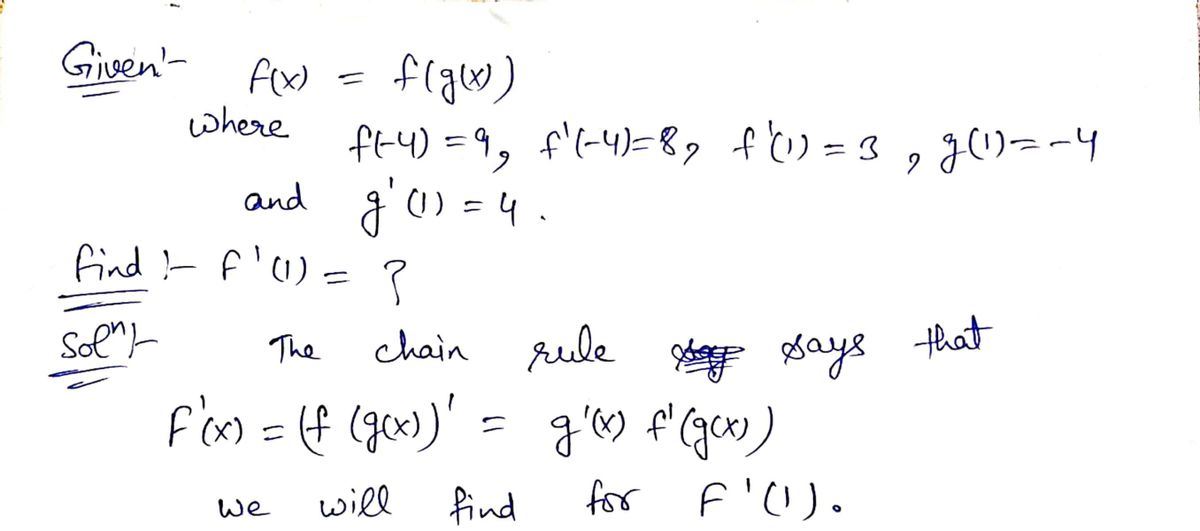 Given:- F(x) = f(g(x))
where f(-4) = 9, f'(-4)=8, f'(1) = 3, g(1) = -4
and g'(1) = 4.
find :- F'(1) = ?
Solⁿ:- The chain rule says that
F'(x) = (f (g(x))' = g'(x) f'(g(x))
we will find for F'(1).